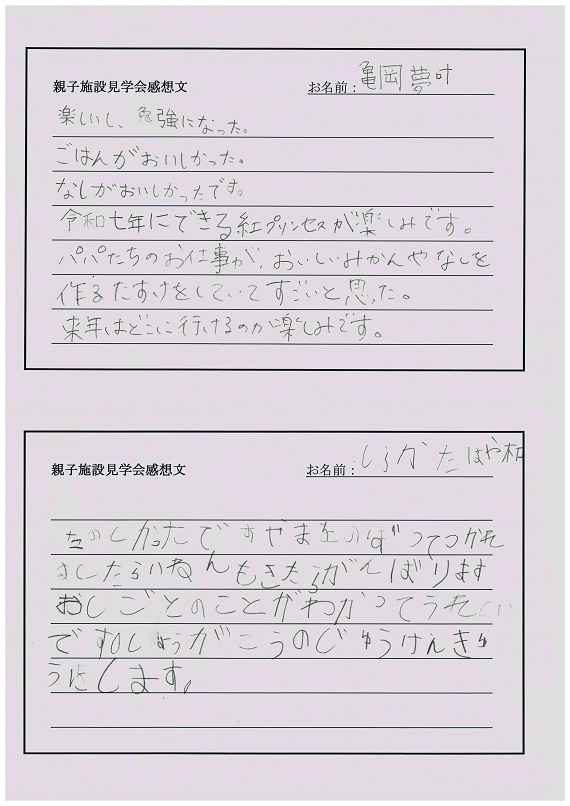 親子施設見学会感想文
お名前：亀岡夢叶
楽しいし、勉強になった。
ごはんがおいしかった。
なしがおいしかったです。
令和七年にできる紅プリンセスが楽しみです。
パパたちのお仕事が、おいしいみかんやなしを
作るたすけをしていてすごいと思った。
来年はどこに行けるのか楽しみです。
親子施設見学会感想文
お名前：しらかたはや
たのしかったですやまをのぼってつかれ
ましたらいねんもきたらがんばります
おしごとのことがわかってうれしい
ですしょうがこうのじゆうけんきゅ
うにします。